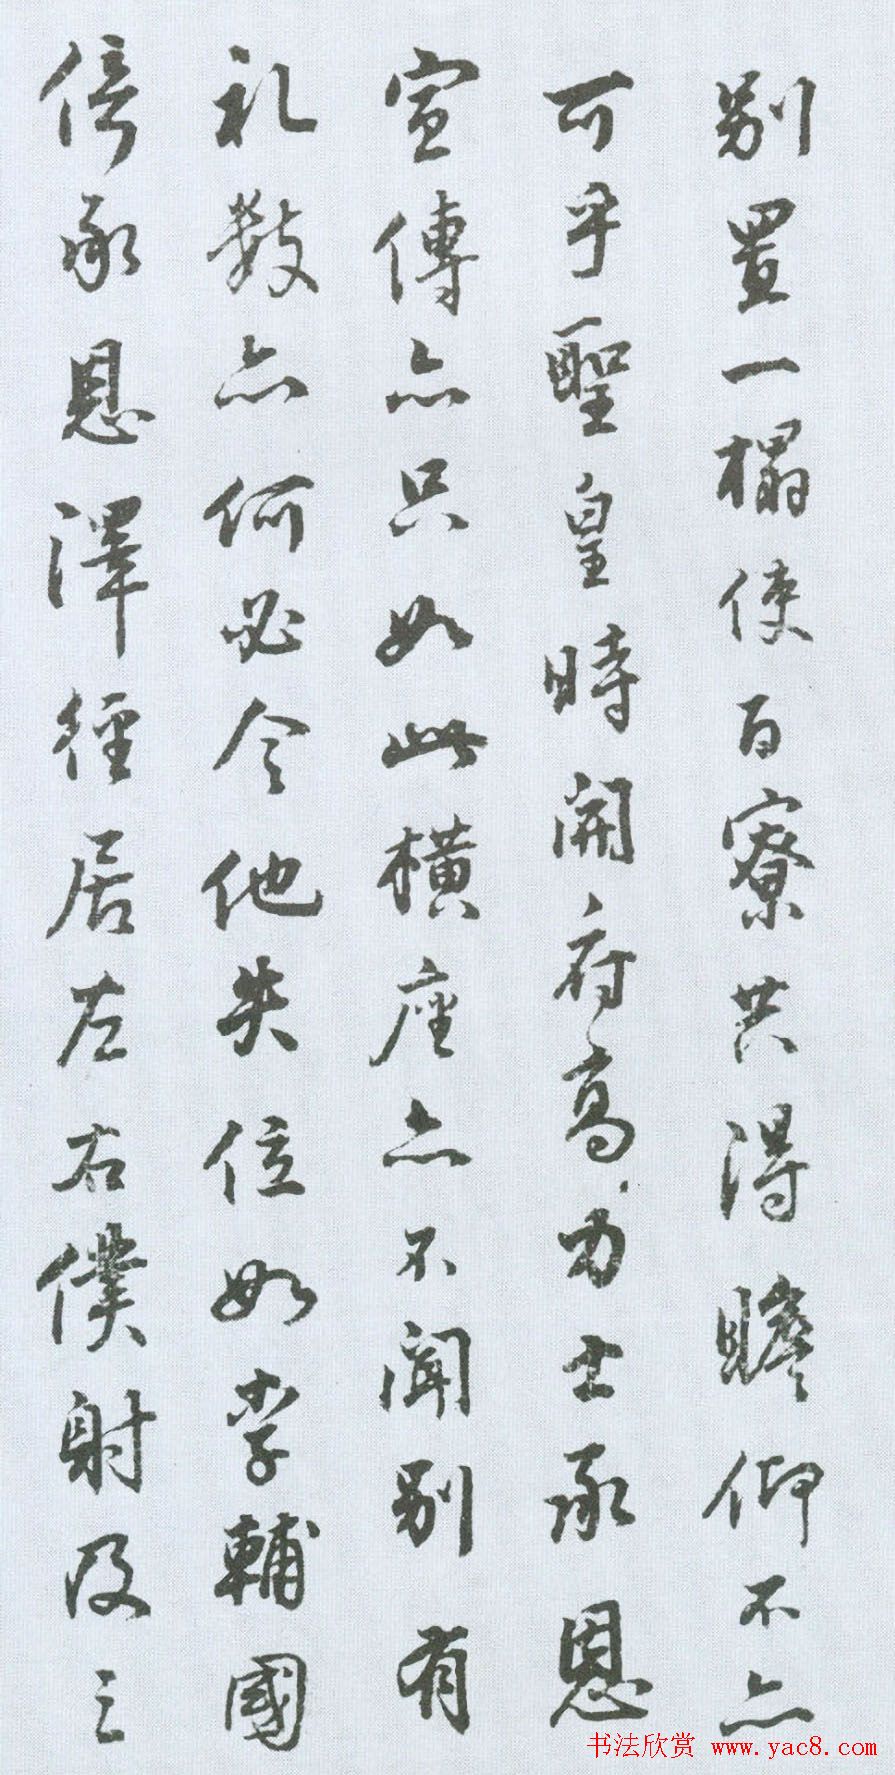 别置一榻使百寮共得瞻仰不亦
可乎聖皇時開府高力士承恩
宣傳亦只如此橫座亦不聞别有
礼數亦何必令他失位如李輔國
倚承恩澤徑居左右僕射及三
书法欣赏 www.yac8.com